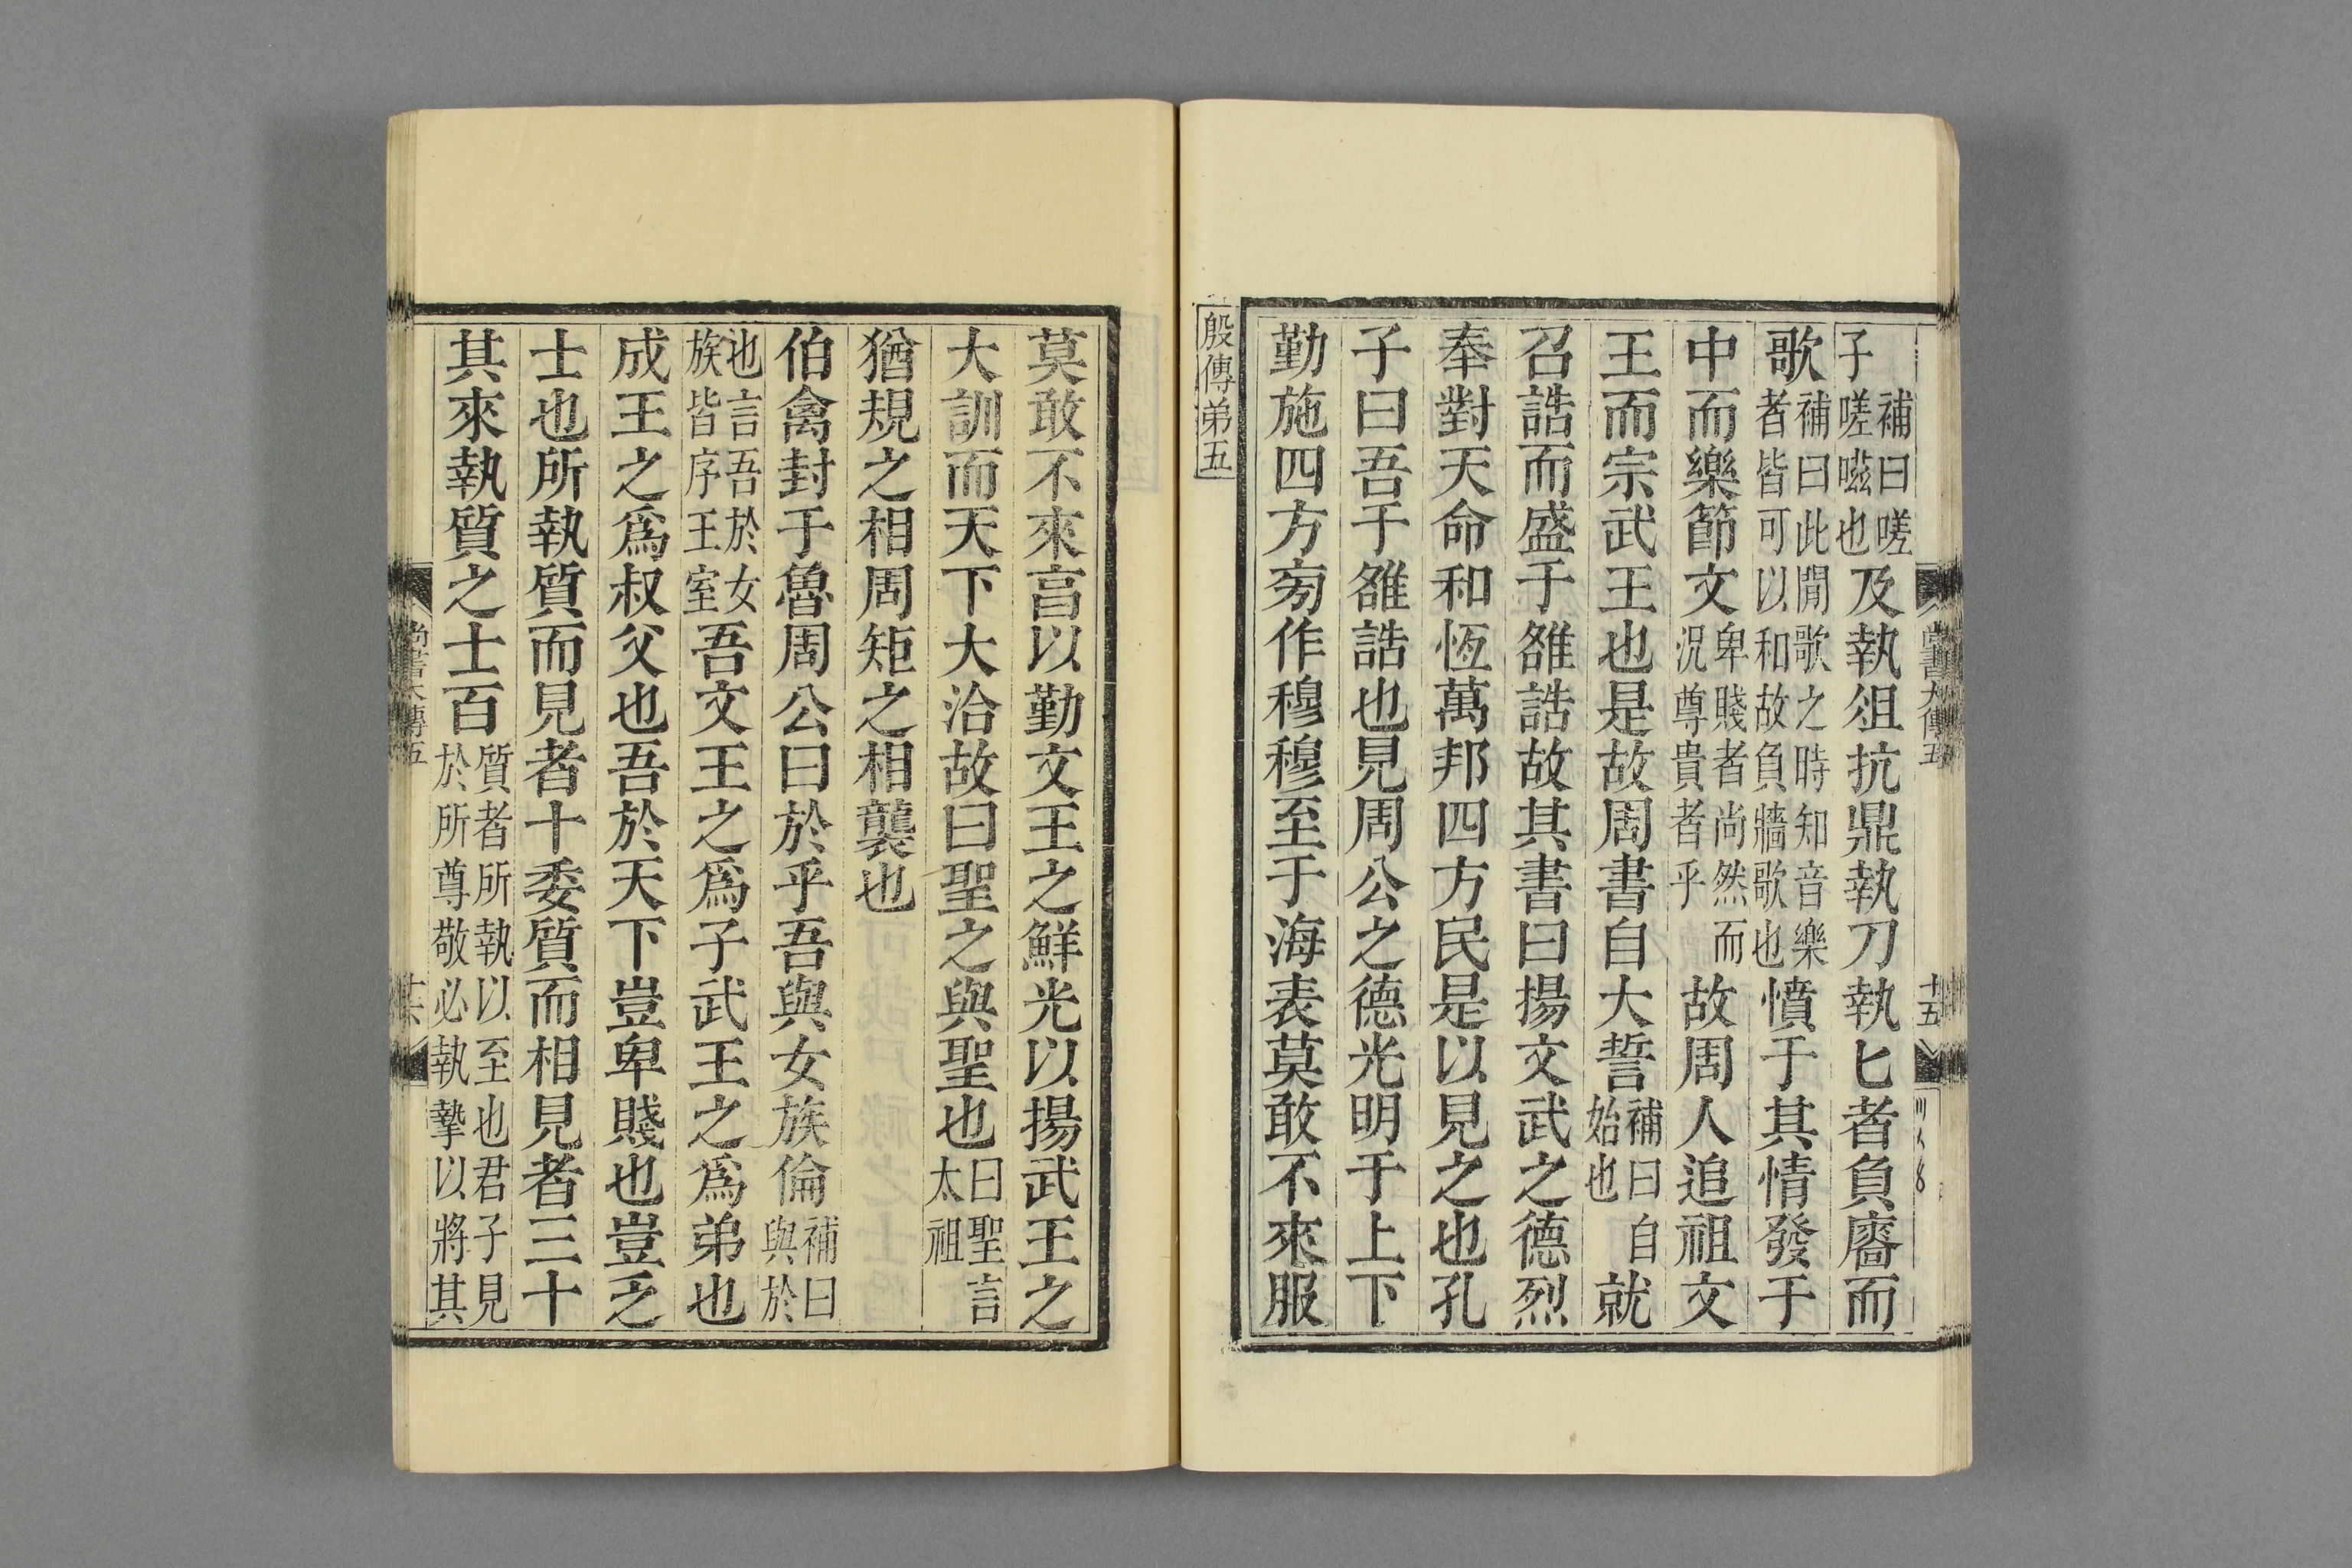 尚書大傳五 十五
補曰嗟子嗟嗞也及執俎抗鼎執刀執匕者負廧而
歌補曰此閒歌之時知音樂者皆可以和故負牆歌也憤于其情發于
中而樂節文卑賤者尚然而況尊貴者乎故周人追祖文
王而宗武王也是故周書自大誓補曰自始也就
召誥而盛于雒誥故其書曰揚文武之德烈
奉對天命和恆萬邦四方民是以見之也孔
子曰吾于雒誥也見周公之德光明于上下
勤施四方旁作穆穆至于海表莫敢不來服
殷傳弟五
莫敢不來享以勤文王之鮮光以揚武王之
大訓而天下大洽故曰聖之與聖也曰聖言太祖
猶規之相周矩之相襲也
伯禽封于魯周公曰於乎吾與女族倫補曰與於
也言吾於女族皆序王室吾文王之爲子武王之爲弟也
成王之爲叔父也吾於天下豈卑賤也豈乏
士也所執質而見者十委質而相見者三十
其來執質之士百質者所執以至也君子見於所尊敬必執摯以將其
尚書大傳五